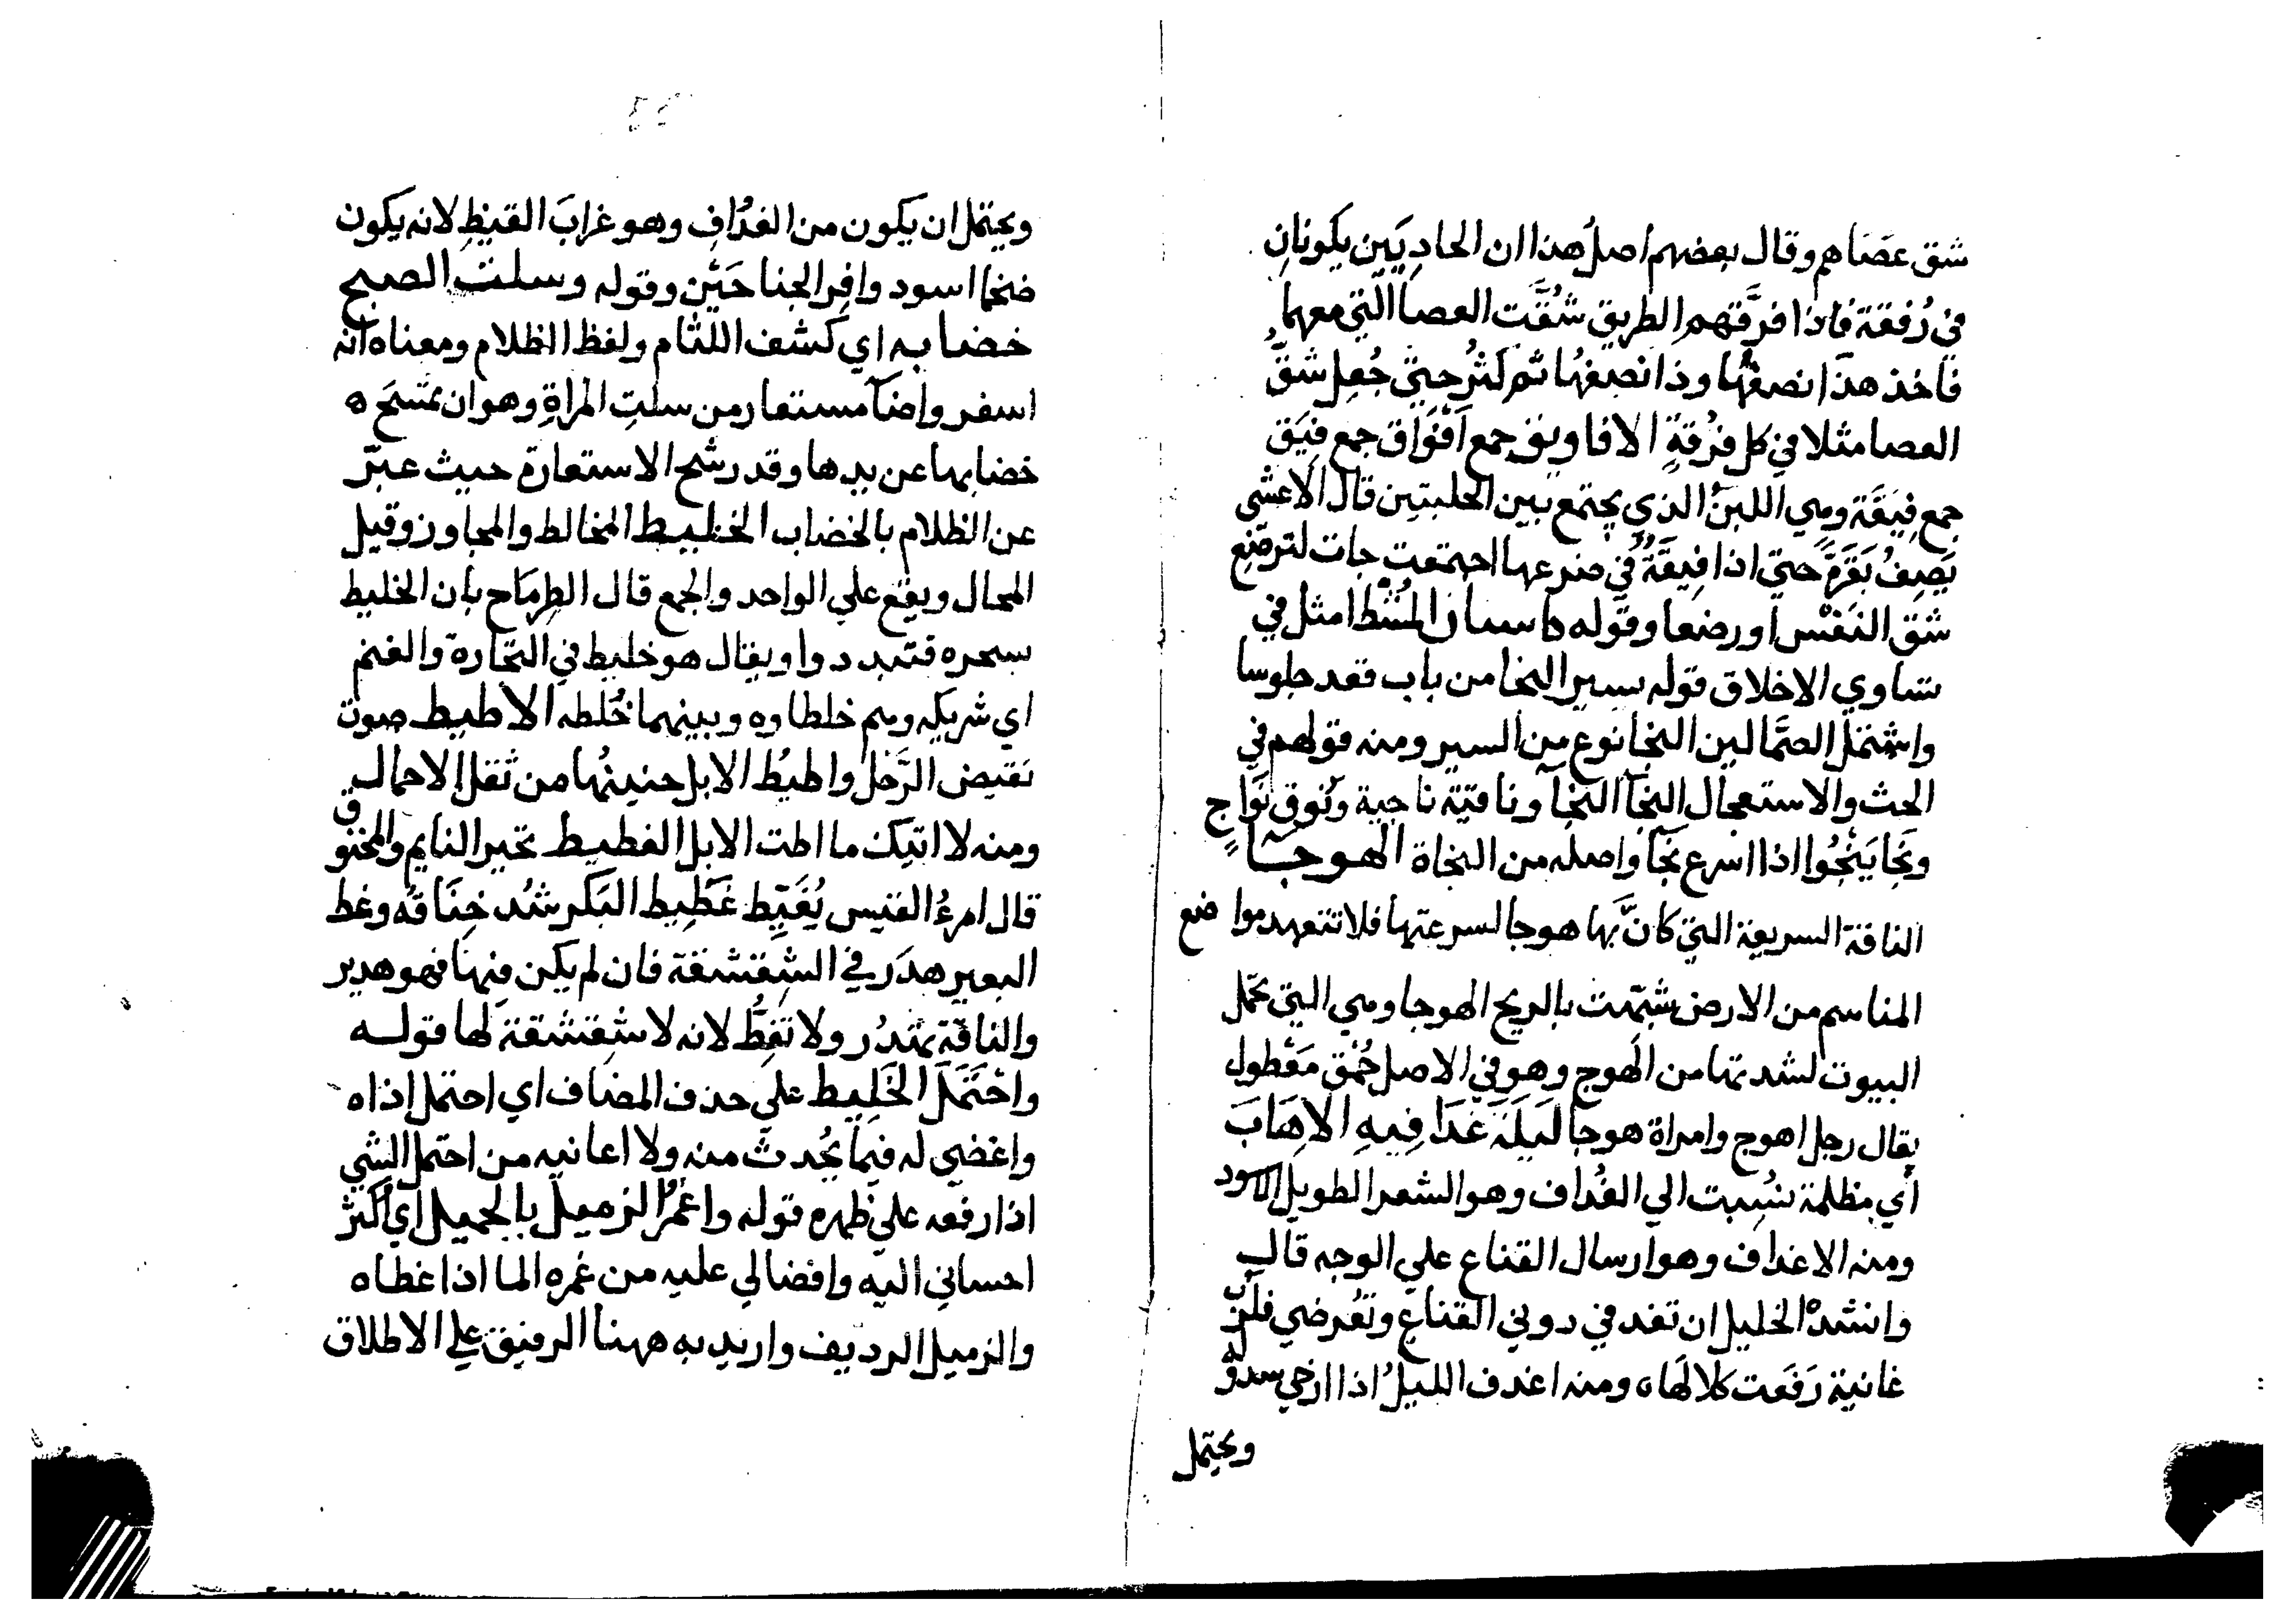 شق عَصَاهم وقال بعضهم اصل هذا ان الحادِيَين يكونانِ
في رُفقة فاذا فرَّقهم الطريق شُقَّت العصا التي معهما
فاخذ هذا نصفَها وذا نصفها ثم كثُر حتي جُعِل شقّ
العصا مثلا في كل فُرقةٍ الافاويق جمع اَفْوَاق جمع فِيَق
جمع فِيقَة وهي اللبنُ الذي يجتمع بين الحلبتين قال الاعشى
يَصِفُ بَقَرَةً حتي اذا فيقَةٌ في ضرعها اجتمعت جات لترضِع
شَقَّ النفْس او رضعا وقوله كاسنان المُشْط امثل في
تساوي الاخلاق قوله سير النجا من باب قعد جلوسا
واشتمل الصَّما لين النجا نوع من السير ومنه قولهم في
الحث والاستعجال النجآ النجآ وناقتة ناجية ونُوق نَوَاجٍ
ونَجَا يَنْجُوا اذا اسرع نَجَآ واصله من النجاة الهوجَـا
الناقة السريعة التي كانَّ بها هوجا لسرعتها فلا تتعهد مواضع
المناسم من الارض شبّهت بالريح الهوجا وهي التي تحمل
البيوت لشدتها من الهوج وهو في الاصل حُمْق مَعَ طول
يقال رجل اهوج وامراة هوجا لَيلَة غدَافيهِ الاهَابَ
أي مظلمة نُسِبت الي الغُداف وهو الشعر الطويل الاسود
ومنه الاغداف وهو ارسال القناع علي الوجه قال
وانشدْ الخليل ان تغدفي دوني القناعَ وتُعرضي فلربّ
غانية رَفَعت كلالَها ه ومنه اغدف الليلُ اذا ارخي سدوله
ويحتمل
ويحتمل ان يكون من الغدُافِ وهو غرابَ القيظِ لانه يكون
ضخما اسود وافِر الجناحَيْن وقوله وسلت الصبح
خضابه اي كشف اللثام ولفظ الظلام ومعناه انه
اسفر واضآ مستعار من سلتِ المراةِ وهو ان تمسَح ه
خضابها عن يدها وقد رشّح الاستعارة حيث عبّر
عن الظلام بالخضاب الخليط المخالط والمجاور وقيل
المحال ويقع علي الواحد والجمع قال الطِرِمَاح بان الخليط
بسحره فتبددوا ويقال هو خليط في التجارة والغنم
اي شريكه وهم خلطاوه وبينهما خُلطه الاطيط صوت
نقيض الرَّحْل واطيُط الابل حنينُها من ثقل الاحمال
ومنه لا اتيك ما اطت الابل الغطيط نخير النايم والمخنوق
قال امرءُ القيس يُغَطِّ غَطِيط البَكر شُد خِنَاقه وغط
البعير هدَر في الشِقشقة فان لم يكن فيها فهو هدير
والناقة تهدُر ولا تغِطُّ لانه لا شِقشقة لها قولـه
واحْتَمَلَ الخَلِيط علي حذف المضاف اي احتمل اذاه
واغضي له فيما يُحْدث منه ولا اعانيه من احتمل الشي
اذا رفعه علي ظهره قوله واغمُرُ الزميل بالجميل اي اكثر
احساني اليه وافضالي عليه من غمره الما اذا غطاه
والزميل الرديف واريد به ههنا الرفيق علي الاطلاق